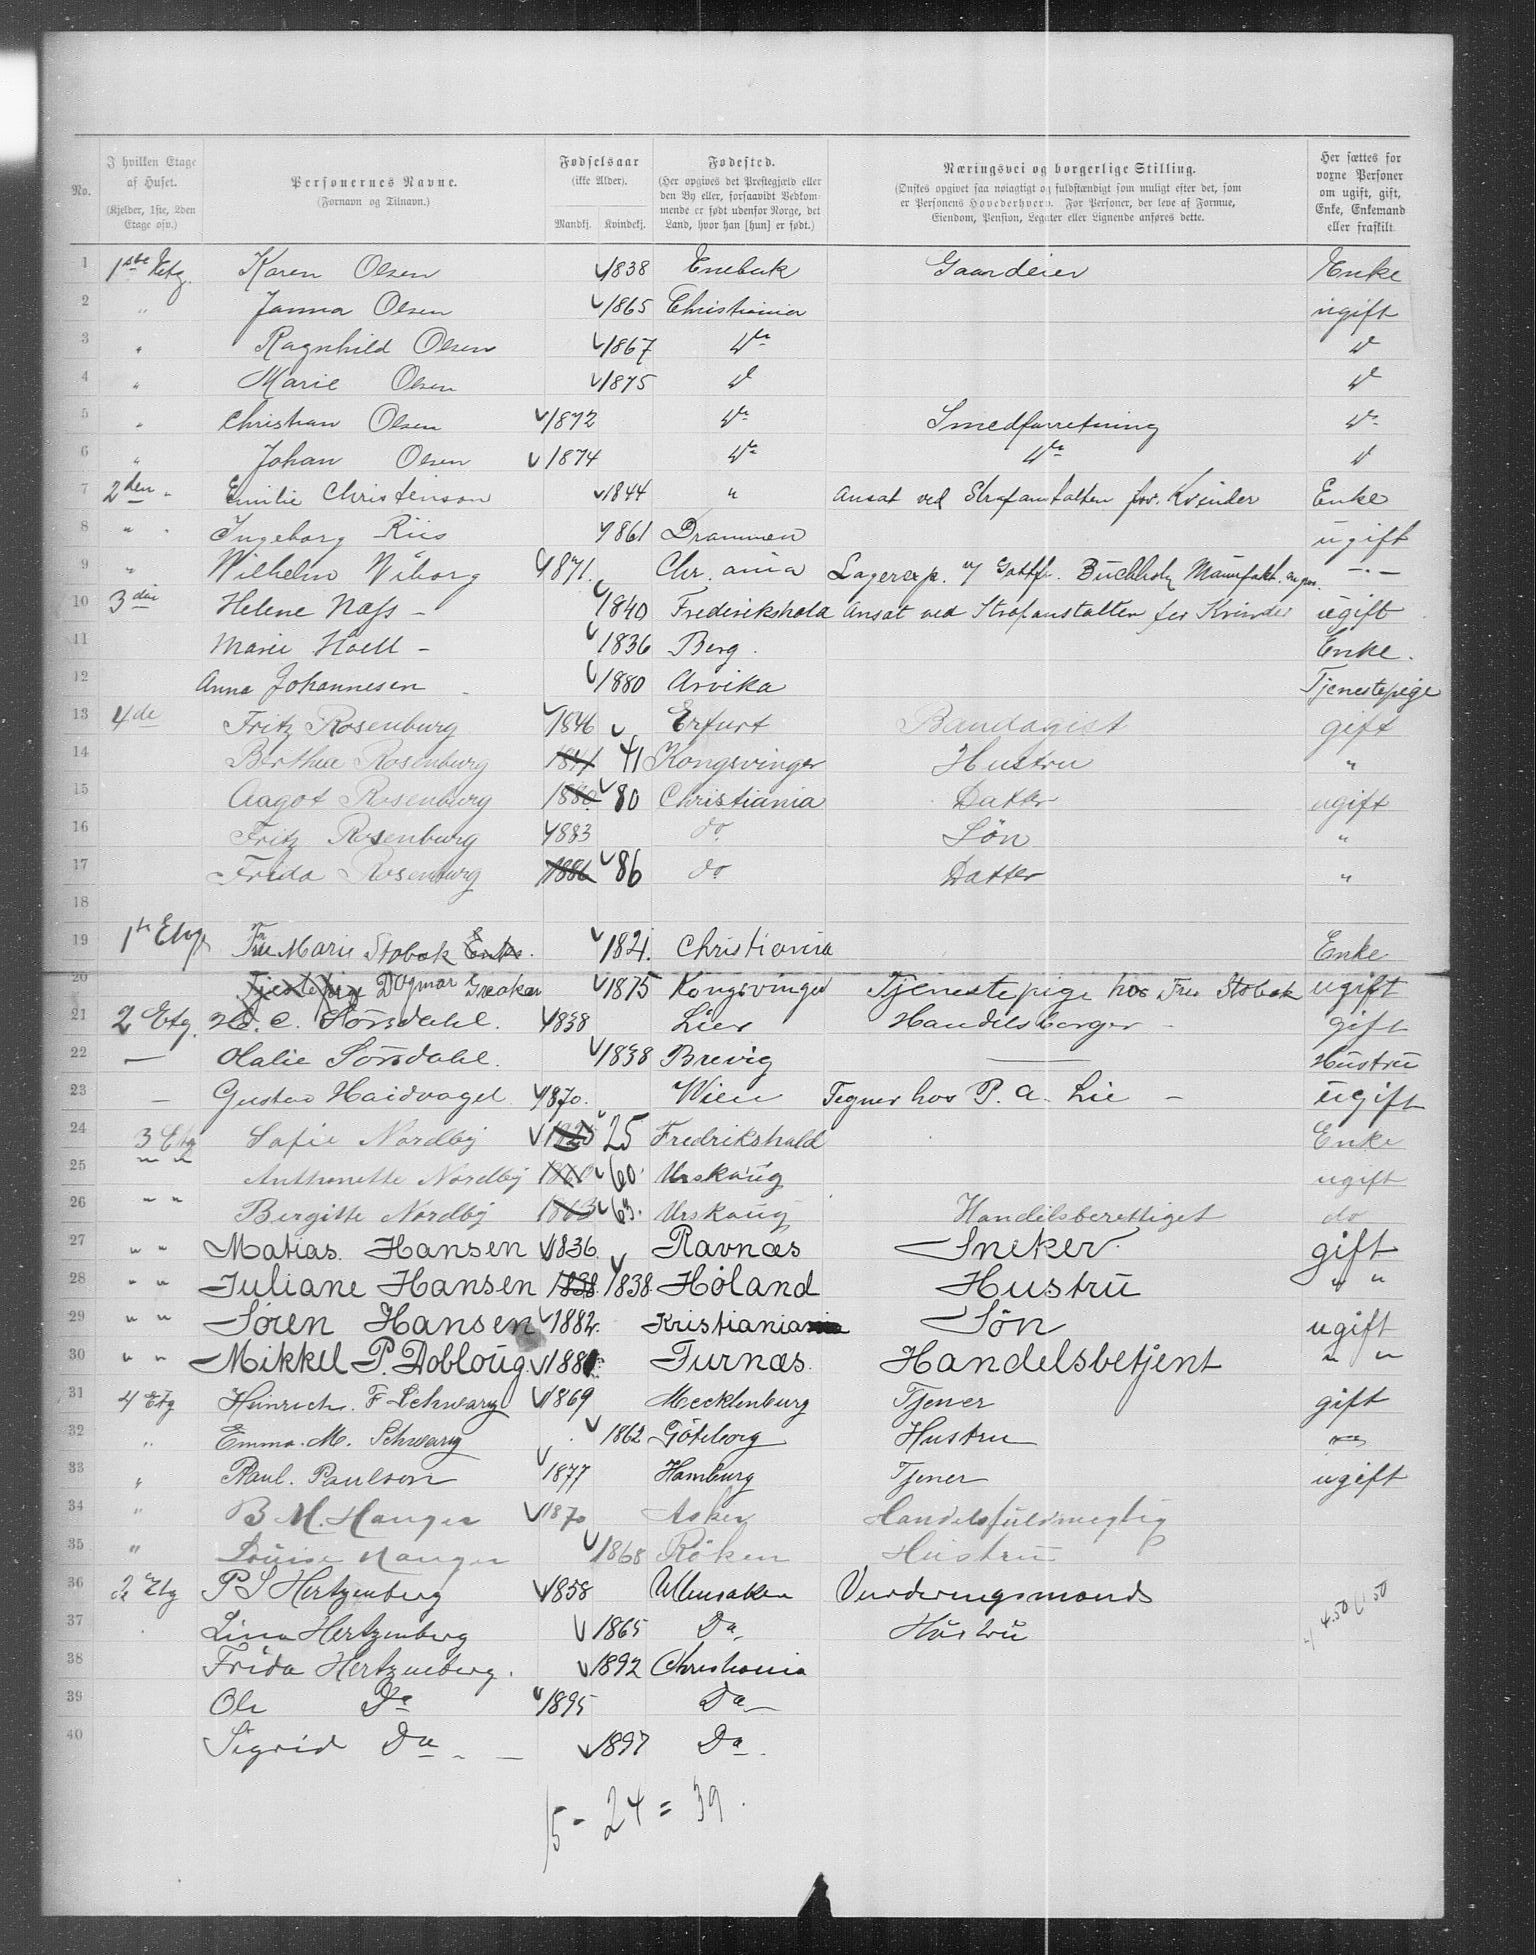 No. | I hvilken Etage af Huset. (Kjelder, 1ste, 2den Etage osv.) | Personernes Navne. (Fornavn og Tilnavn.) | Fødselsaar (ikke Alder). Mandkj. Kvindekj. | Fødested. (Her opgives det Prestegjæld eller den By eller, forsaavidt Vedkommende er født udenfor Norge, det Land, hvor han [hun] er født.) | Næringsvei og borgerlige Stilling. (Ønskes opgivet saa nøiagtigt og fuldstændigt som muligt efter det, som er Personens Hovederhverv. For Personer, der leve af Formue, Eiendom, Pension, Legater eller Lignende anføres dette. | Her sættes for voxne Personer om ugift, gift, Enke, Enkemand eller fraskilt.
1 1ste Etg. Karen Olsen 1838 Enebak Gaardeier Enke
2 " Janna Olsen 1865 Christiania ugift
3 " Ragnhild Olsen 1867 do do
4 " Marie Olsen 1875 do do
5 " Christian Olsen 1872 do Smedforretning do
6 " Johan Olsen 1874 do do do
7 2den " Emilie Christenson 1844 " Ansat ved Strafanstalten for Kvinder Enke
8 " " Ingeborg Riis 1861 Drammen ugift
9 " Wilhelm Wiborg 1871. Chr.ania Lagerexp. Gottfr. Buchholz Manufakt. -"-
10 3die Helene Næss - 1840 Frederikshald Ansat ved Strafanstalten for Kvinder ugift
11 Marie Hoell - 1836 Berg. Enke.
12 Anna Johannesen 1880 Arvika Tjenestepige
13 4de Fritz Rosenburg 1846 Erfurt Bandagist gift
14 Berthea Rosenburg 1841 41 Kongsvinger Hustru "
15 Aagot Rosenburg 1880 80 Christiania Datter ugift
16 Fritz Rosenburg 1883 do Søn "
17 Frida Rosenburg 1886 86 do Datter "
18
19 1ste Etg Fru Marie Stabak Enke. 1821. Christiania Enke
20 Tjenestepige Dagmar Greaker 1875 Kongsvinger Tjenestepige hos Fru Stabak ugift
21 2 Etg. H. C. Sørsdahl. 1838 Lier Handelsborger - gift
22 — Olalie Sørsdahl. 1838 Brevig — Hustru
23 — Gustav Haidvogel 1870. Wien Tegner hos P. A. Lie - ugift
24 3 Etg Sofie Nordby 1825 25 Fredrikshald Enke
25 " " Anthonette Nordby 1860 60 Urskaug ugift
26 " " Bergitte Nordby 1863 63. Urskaug Handelsberettiget do
27 " " Matias Hansen 1836 Ravnæs Sneker gift
28 " " Juliane Hansen 1838 1838. Høland Hustru " "
29 " " Søren Hansen 1882. Kristiania Søn ugift
30 " " Mikkel P. Dobloug 1881 Furnæs Handelsbetjent " "
31 4 Etg Heinrich. F Schwarz 1869 Mecklenburg Tjener gift
32 " Emma. M. Schwarz 1862 Göteborg Hustru
33 " Paul. Paulson 1877 Hamburg Tjener ugift
34 " B M. Hanger 1870 Asker Handelsfuldmegtig
35 " Louise Hanger 1868 Röken Hustru
36 2 Etg P S Hertzenberg 1858 Ullensaker Vurderingsmand
37 Lina Hertzenberg 1865 Do Hustru 4.50 50
38 Frida Hertzenberg. 1892 Christiania
39 Ole Do 1895 Do
40 Sigrid Do 1897 Do.
15 - 24 = 39.